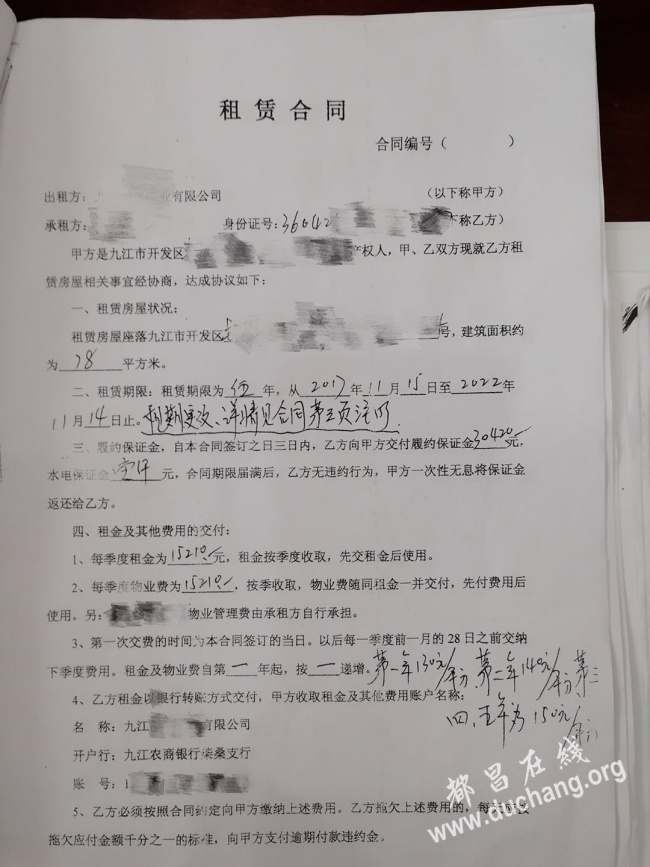 租赁合同
合同编号（ ）
出租方： 业有限公司 （以下称甲方）
承租方： 身份证号：36042 下称乙方）
甲方是九江市开发区 产权人，甲、乙双方现就乙方租
赁房屋相关事宜经协商，达成协议如下：
一、租赁房屋状况：
租赁房屋座落九江市开发区 号，建筑面积约
为 78 平方米。
二、租赁期限：租赁期限为 伍 年，从 2017 年 11 月 15 日至 2022 年
11 月 14 日止。租期变改、详情见合同第三页注明
三、履约保证金，自本合同签订之日三日内，乙方向甲方交付履约保证金 30420 元，
水电保证金 壹仟 元，合同期限届满后，乙方无违约行为，甲方一次性无息将保证金
返还给乙方。
四、租金及其他费用的交付：
1、每季度租金为 15210 元，租金按季度收取，先交租金后使用。
2、每季度物业费为 15210 ，按季收取，物业费随同租金一并交付，先付费用后
使用。另： 物业管理费由承租方自行承担。
3、第一次交费的时间为本合同签订的当日。以后每一季度前一月的 28 日之前交纳
下季度费用。租金及物业费自第 一 年起，按 一 递增。第一年130元/ 第二年140元/ 第三
四、五年为150元/
4、乙方租金以银行转账方式交付，甲方收取租金及其他费用账户名称：
名 称：九江 有限公司
开户行：九江农商银行柴桑支行
账 号：1
5、乙方必须按照合同约定向甲方缴纳上述费用。乙方拖欠上述费用的，每
拖欠应付金额千分之一的标准，向甲方支付逾期付款违约金。
都昌在线
www.duchang.org